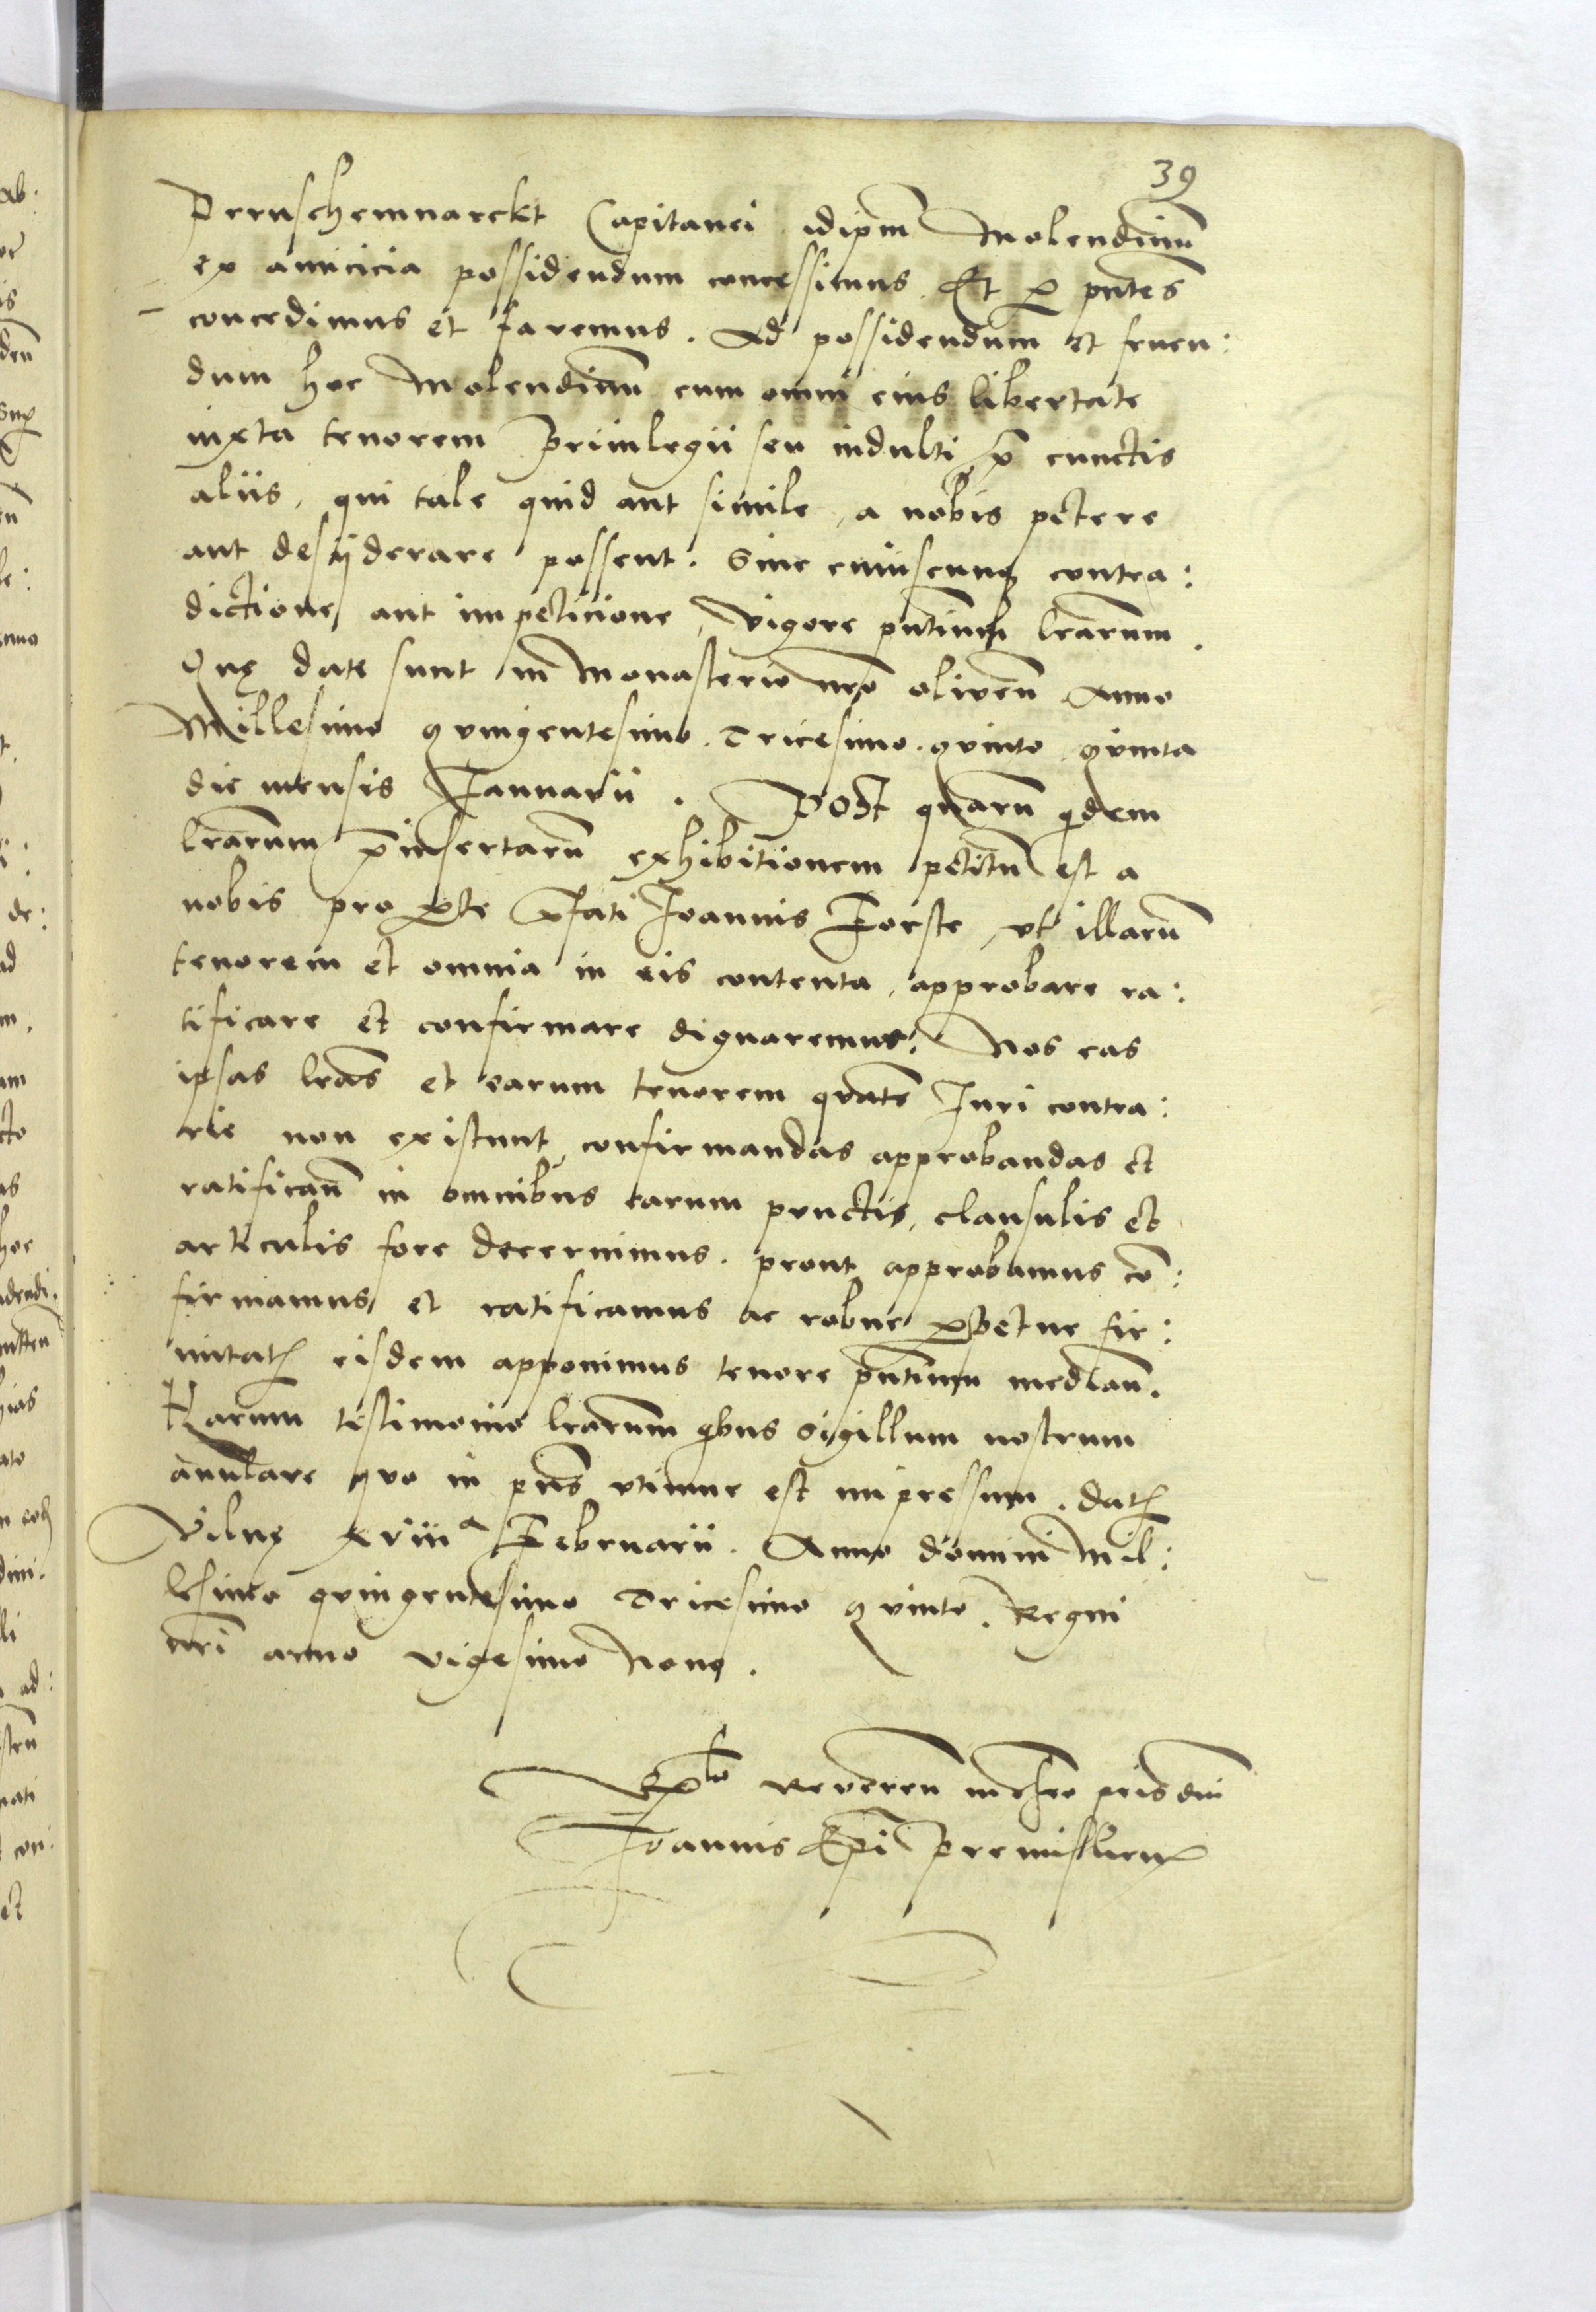 39
Preuschenmarckt Capitanei idipm̄ Molendinū
ex amicicia possidendum concessimus. Et p̱ pn̄tes
concedimus et favemus. Ad possidendum et fruen:
dum hoc Molendinū cum omni eius libertate
iuxta tenorem Priuilegii seu indulti p̄ cunctis
aliis, qui tale quid aut simile, a nobis petere
aut desyderare possent. Sine cuiuscunq; contra:
dictione aut impeticione, vigore pn̄tium lr̄arum.
Quę date sunt in Monasterio nr̄o oliven̄ Anno
Millesimo quingentesimo. Tricesimo. quinto quinta
die mensis Januarii. Post quarū qdem
lr̄arum p̄insertarū exhibitionem petitū est a
nobis pro p̱te p̄fati Joannis Forste, vt illarū
tenorem et omnia in eis contenta, approbare ra:
tificare et confirmare dignaremur: Nos eas
ipsas lr̄as et earum tenorem quaten̄ Juri contra:
rie non existunt confirmandas approbandas et
ratifican̄ in omnibus earum punctis, clausulis et
articulis fore decernimus. prout approbamus cō:
firmamus et ratificamus ac robur p̱petue fir:
mitatꝭ eisdem apponimus tenore pn̄tium median̄.
Harum testimonio lr̄arum qbus sigillum nostrum
annulare quo in pn̄s vtimur est impressum. Datꝭ
Vilnę xviiiᵃ Februarii. Anno domini Mil:
lesimo quingentesimo Tricesimo quinto. Regni
nr̄i anno vigesimo Nono.
Rᵗⁱᵒ Reveren̄ in chr̄o pris dn̄i
Joannis Ep̄i Premislien̄